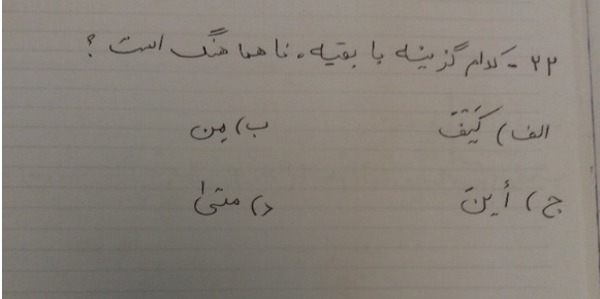 ۲۲- کدام گزینه با بقیه، ناهماهنگ است؟
الف) کَیْفَ ب) مِن
ج) أینَ د) متیٰ